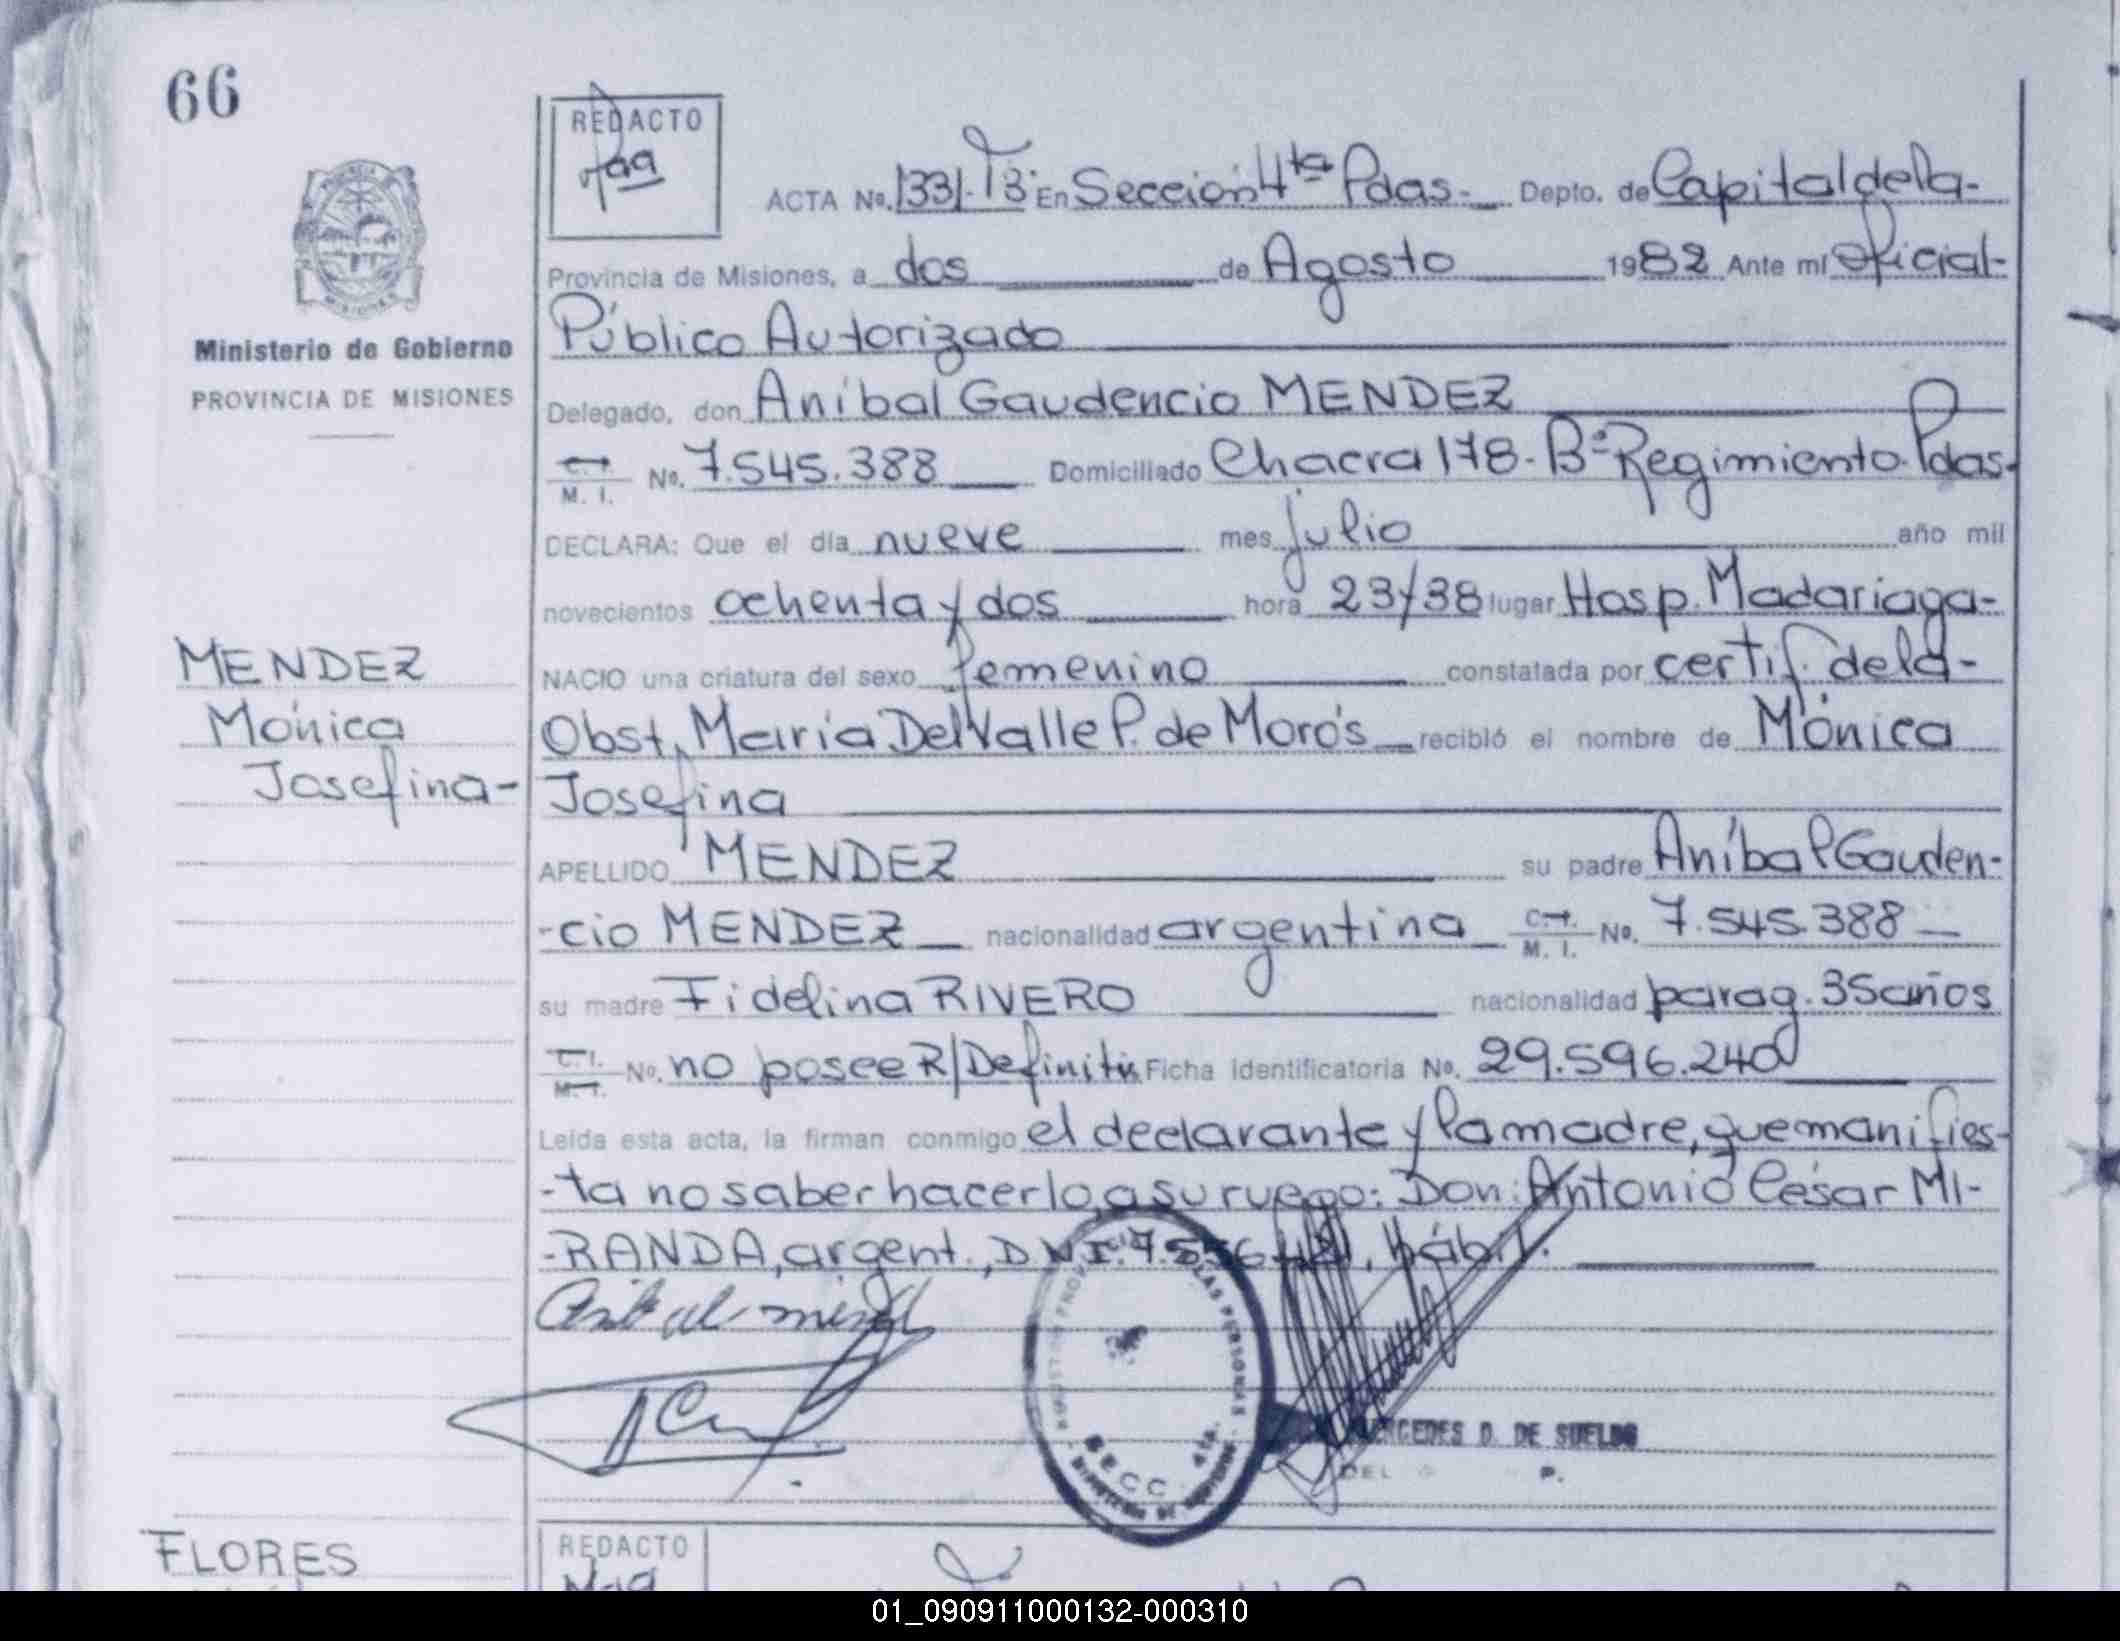 66
REDACTO
ACTA No. 1331-T3 En Sección 4ta Pdas.- Depto. de Capital de la-
Provincia de Misiones, a dos de Agosto 1982 Ante mi Oficial-
Ministerio de Gobierno
PROVINCIA DE MISIONES
Público Autorizado
Delegado, don Aníbal Gaudencio MENDEZ
C. I. M. I. No. 7.545.388 Domiciliado Chacra 178-Bº Regimiento-Pdas-
DECLARA: Que el día nueve mes julio año mil
novecientos ochenta y dos hora 23/38 lugar Hosp. Madariaga-
MENDEZ
Mónica
Josefina-
NACIO una criatura del sexo femenino constatada por certif. de la-
Obst, María Del Valle P. de Morós recibió el nombre de Mónica
Josefina
APELLIDO MENDEZ su padre Aníbal Gauden-
-cio MENDEZ nacionalidad argentina C. I. M. I. No. 7.545.388
su madre Fidelina RIVERO nacionalidad parag. 35 años
C. I. M. I. No. no posee R/Definitiv Ficha identificatoria No. 29.596.240
Leída esta acta, la firman conmigo el declarante y la madre, que manifies-
-ta no saber hacerlo, a su ruego: Don: Antonio César MI-
-RANDA, argent., DNI. hábil.
SECC. 4ta.
MERCEDES D. DE SUELDO
FLORES
REDACTO
01_090911000132-000310